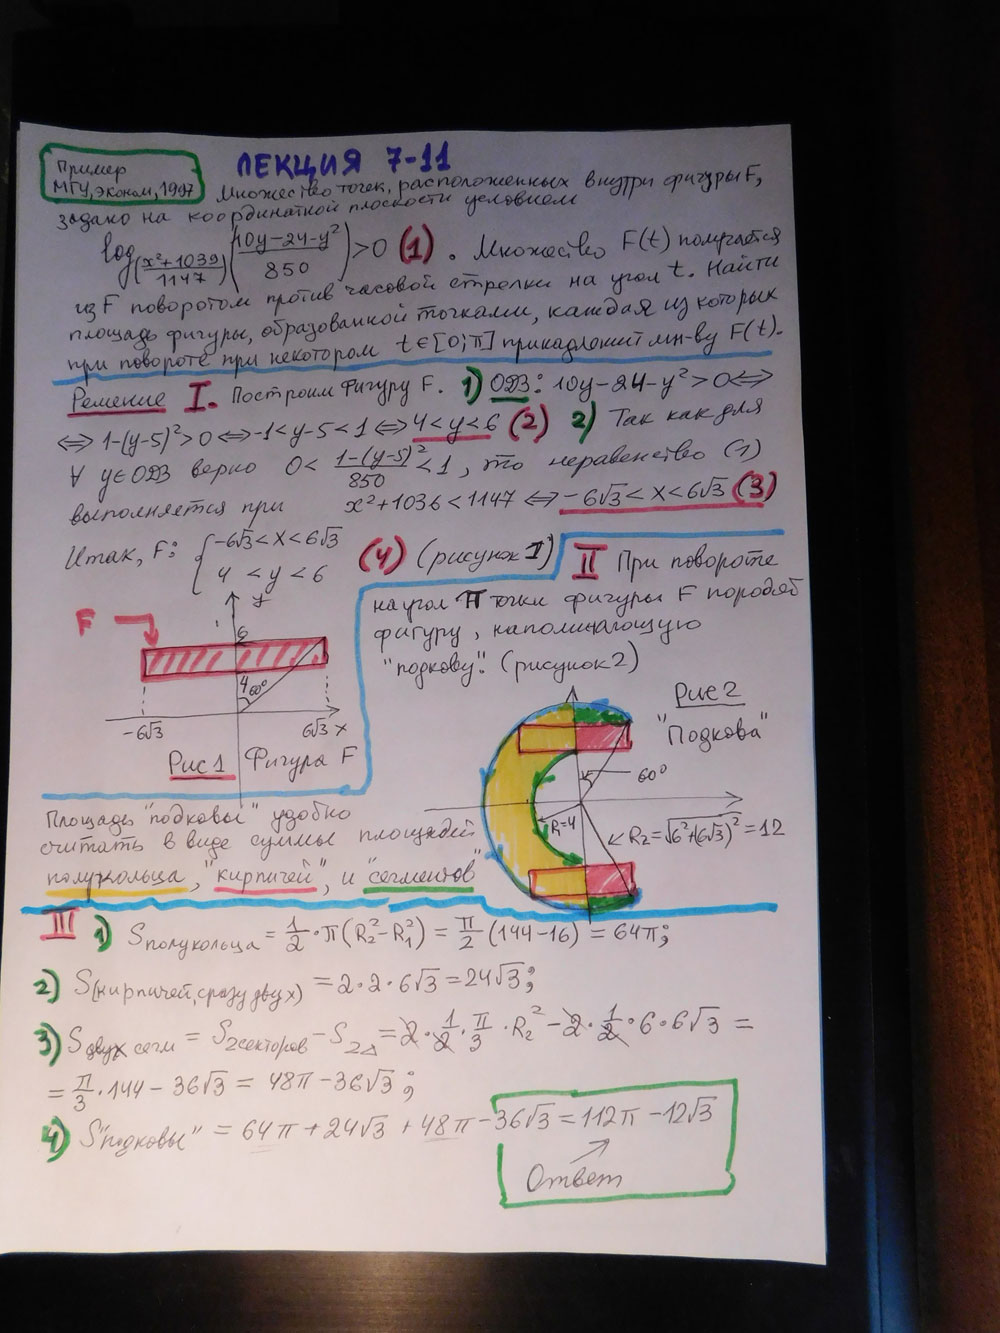 ЛЕКЦИЯ 7-11
Пример
МГУ, эконом, 1997
Множество точек, расположенных внутри фигуры F,
задано на координатной плоскости условием
log_((x²+1039)/1147) ((10y-24-y²)/850) > 0 (1). Множество F(t) получается
из F поворотом против часовой стрелки на угол t. Найти
площадь фигуры, образованной точками, каждая из которых
при повороте при некотором t∈[0;π] принадлежит мн-ву F(t).
Решение I. Построим фигуру F. 1) ОДЗ: 10y-24-y²>0 ⇔
⇔ 1-(y-5)²>0 ⇔ -1<y-5<1 ⇔ 4<y<6 (2) 2) Так как для
∀ y∈ОДЗ верно 0 < (1-(y-5)²)/850 < 1, то неравенство (1)
выполняется при x²+1036<1147 ⇔ -6√3<x<6√3 (3)
Итак, F: { -6√3<x<6√3
4<y<6 (4) (рисунок 1)
II При повороте
на угол π точки фигуры F породят
фигуру, напоминающую
"подкову". (рисунок 2)
F
y
6
4
60°
-6√3
6√3 x
Рис 1 Фигура F
Рис 2
"Подкова"
60°
R₁=4
R₂=√(6²+(6√3)²)=12
Площадь "подковы" удобно
считать в виде суммы площадей
полукольца, "кирпичей", и "сегментов"
III 1) Sполукольца = 1/2·π(R₂²-R₁²) = π/2 (144-16) = 64π;
2) S(кирпичей, сразу двух) = 2·2·6√3 = 24√3;
3) Sдвух сегм = S2секторов - S2Δ = 2·1/2·π/3·R₂² - 2·1/2·6·6√3 =
= π/3·144 - 36√3 = 48π - 36√3;
4) S"подковы" = 64π + 24√3 + 48π - 36√3 = 112π - 12√3
Ответ